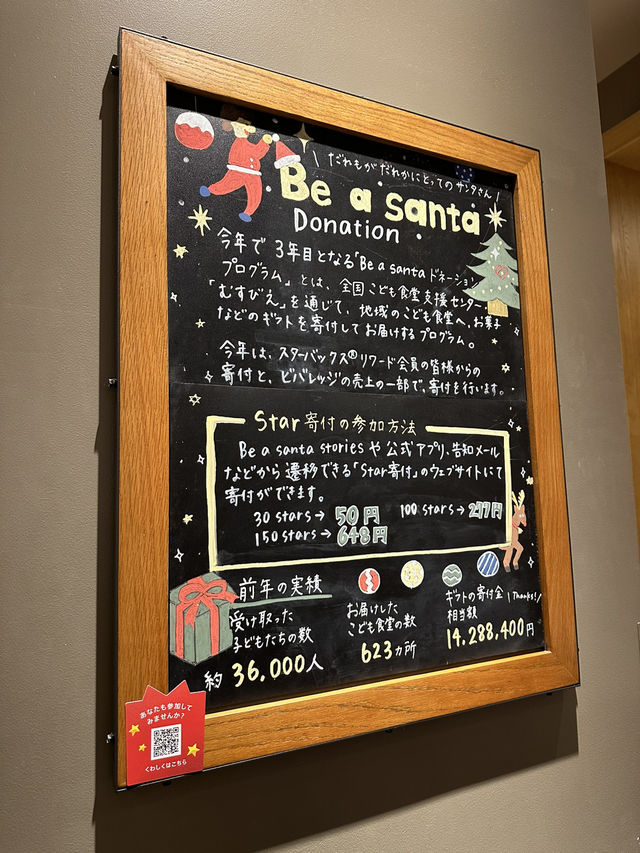 \ だれもがだれかにとってのサンタさん /
Be a santa
Donation
今年で3年目となる「Be a santa ドネーション
プログラム」とは、全国こども食堂支援センター・
「むすびえ」を通じて、地域のこども食堂へ、お菓子
などのギフトを寄付してお届けするプログラム。
今年は、スターバックス®リワード会員の皆様からの
寄付と、ビバレッジの売上の一部で、寄付を行います。
Star寄付の参加方法
Be a santa storiesや公式アプリ、告知メール
などから遷移できる「Star寄付」のウェブサイトにて
寄付ができます。
30 stars→ 50円 100 stars→ 277円
150 stars→ 648円
前年の実績
受け取った
子どもたちの数
約36,000人
お届けした
こども食堂の数
623カ所
ギフトの寄付金
相当額
\Thanks!/
14,288,400円
あなたも参加して
みませんか?
くわしくはこちら